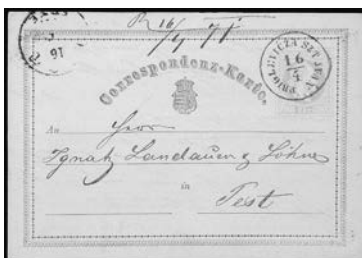 R 16/4 71
16
4
Correspondenz-Karte.
An
Herrn
Ignatz Landauer & Söhne
in
Pest